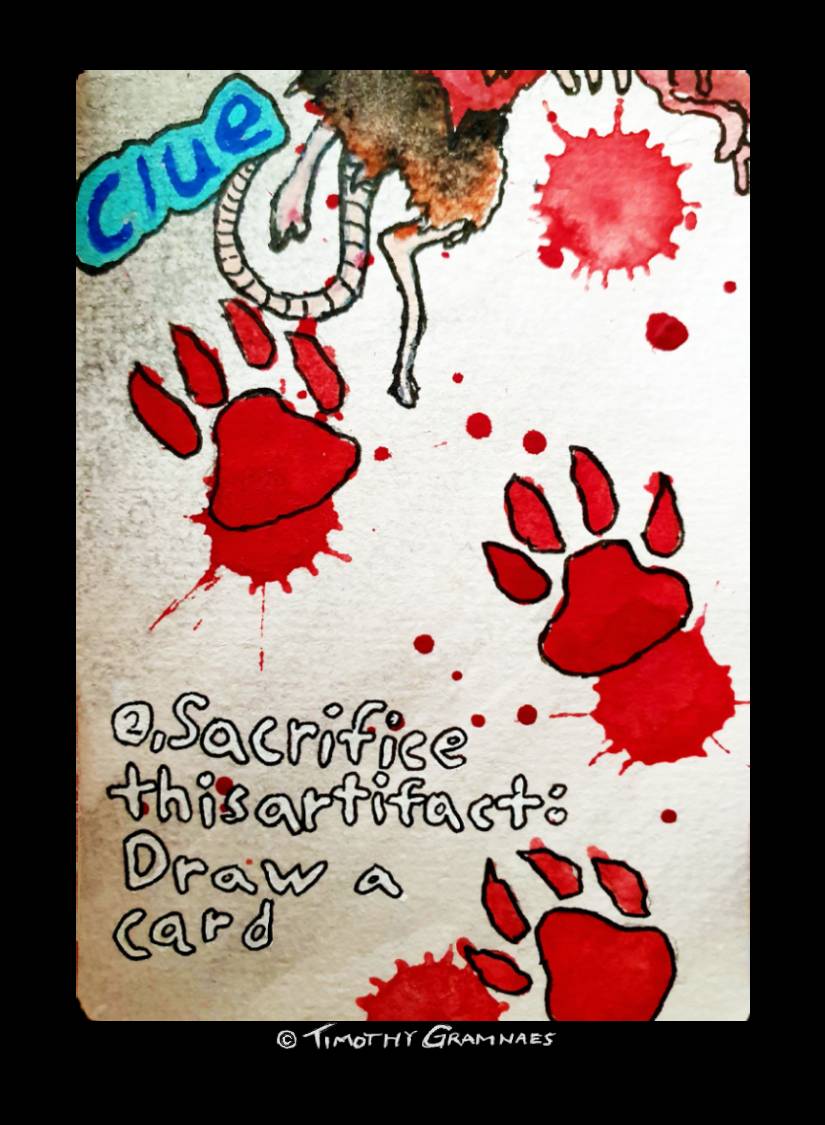 Clue
②, Sacrifice
this artifact:
Draw a
card
© TIMOTHY GRAMNAES